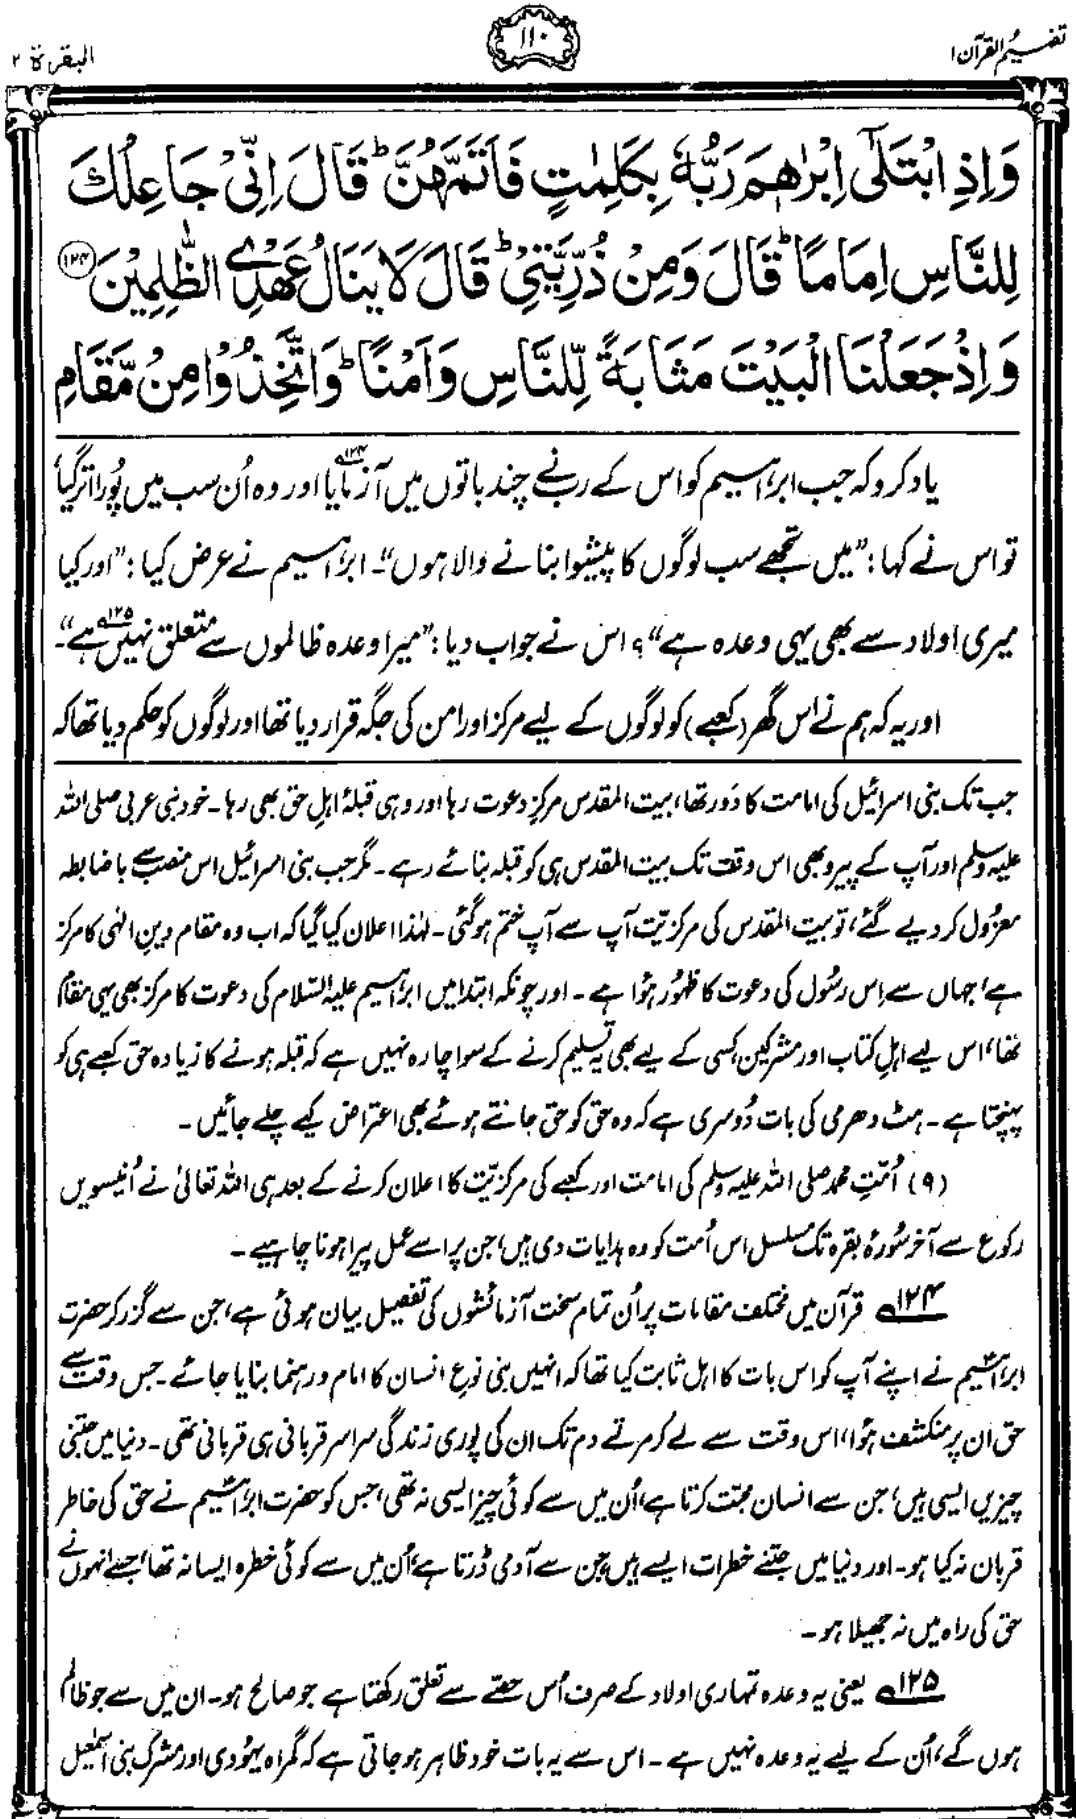 تفہیم القرآن ۱
۱۱۰
البقرۃ ۲
وَاِذِ ابْتَلٰٓى اِبْرٰهٖمَ رَبُّهٗ بِكَلِمٰتٍ فَاَتَمَّهُنَّ ؕ قَالَ اِنِّیْ جَاعِلُكَ
لِلنَّاسِ اِمَامًا ؕ قَالَ وَمِنْ ذُرِّیَّتِیْ ؕ قَالَ لَا یَنَالُ عَهْدِی الظّٰلِمِیْنَ ﴿۱۲۴﴾
وَاِذْ جَعَلْنَا الْبَیْتَ مَثَابَةً لِّلنَّاسِ وَاَمْنًا ؕ وَاتَّخِذُوْا مِنْ مَّقَامِ
یاد کرو کہ جب ابراہیم کو اس کے رب نے چند باتوں میں آزمایا۱۲۴ اور وہ اُن سب میں پُورا اتر گیا،
تو اس نے کہا: ”میں تجھے سب لوگوں کا پیشوا بنانے والا ہوں“۔ ابراہیم نے عرض کیا: ”اور کیا
میری اولاد سے بھی یہی وعدہ ہے“؟ اس نے جواب دیا: ”میرا وعدہ ظالموں سے متعلق نہیں ہے“۔۱۲۵
اور یہ کہ ہم نے اس گھر (کعبے) کو لوگوں کے لیے مرکز اور امن کی جگہ قرار دیا تھا اور لوگوں کو حکم دیا تھا کہ
جب تک بنی اسرائیل کی امامت کا دَور تھا، بیت المقدس مرکزِ دعوت رہا اور وہی قبلۂ اہلِ حق بھی رہا۔ خود نبی عربی صلی اللہ
علیہ وسلم اور آپ کے پیرو بھی اس وقت تک بیت المقدس ہی کو قبلہ بنائے رہے۔ مگر جب بنی اسرائیل اس منصب سے باضابطہ
معزُول کر دیے گئے، تو بیت المقدس کی مرکزیّت آپ سے آپ ختم ہو گئی۔ لہٰذا اعلان کیا گیا کہ اب وہ مقام دینِ الٰہی کا مرکز
ہے، جہاں سے اِس رسُول کی دعوت کا ظہُور ہؤا ہے۔ اور چونکہ ابتدا میں ابراہیم علیہ السّلام کی دعوت کا مرکز بھی یہی مقام
تھا، اس لیے اہلِ کتاب اور مشرکین، کسی کے لیے بھی یہ تسلیم کرنے کے سوا چارہ نہیں ہے کہ قبلہ ہونے کا زیادہ حق کعبے ہی کو
پہنچتا ہے۔ ہٹ دھرمی کی بات دُوسری ہے کہ وہ حق کو حق جانتے ہوئے بھی اعتراض کیے چلے جائیں۔
(۹) اُمّتِ محمد صلی اللہ علیہ وسلم کی امامت اور کعبے کی مرکزیّت کا اعلان کرنے کے بعد ہی اللہ تعالیٰ نے اُنیسویں
رکوع سے آخر سُورۂ بقرہ تک مسلسل اس اُمت کو وہ ہدایات دی ہیں، جن پر اسے عمل پیرا ہونا چاہیے۔
۱۲۴ قرآن میں مختلف مقامات پر اُن تمام سخت آزمائشوں کی تفصیل بیان ہوئی ہے، جن سے گزر کر حضرت
ابراہیمؑ نے اپنے آپ کو اس بات کا اہل ثابت کیا تھا کہ انہیں بنی نوع انسان کا امام و رہنما بنایا جائے۔ جس وقت سے
حق ان پر منکشف ہؤا، اس وقت سے لے کر مرتے دم تک ان کی پوری زندگی سراسر قربانی ہی قربانی تھی۔ دنیا میں جتنی
چیزیں ایسی ہیں، جن سے انسان محبّت کرتا ہے، اُن میں سے کوئی چیز ایسی نہ تھی، جس کو حضرت ابراہیمؑ نے حق کی خاطر
قربان نہ کیا ہو۔ اور دنیا میں جتنے خطرات ایسے ہیں، جن سے آدمی ڈرتا ہے، اُن میں سے کوئی خطرہ ایسا نہ تھا، جسے انہوں نے
حق کی راہ میں نہ جھیلا ہو۔
۱۲۵ یعنی یہ وعدہ تمہاری اولاد کے صرف اُس حصّے سے تعلق رکھتا ہے جو صالح ہو۔ ان میں سے جو ظالم
ہوں گے، اُن کے لیے یہ وعدہ نہیں ہے۔ اس سے یہ بات خود ظاہر ہو جاتی ہے کہ گمراہ یہُودی اور مشرک بنی اسمٰعیل